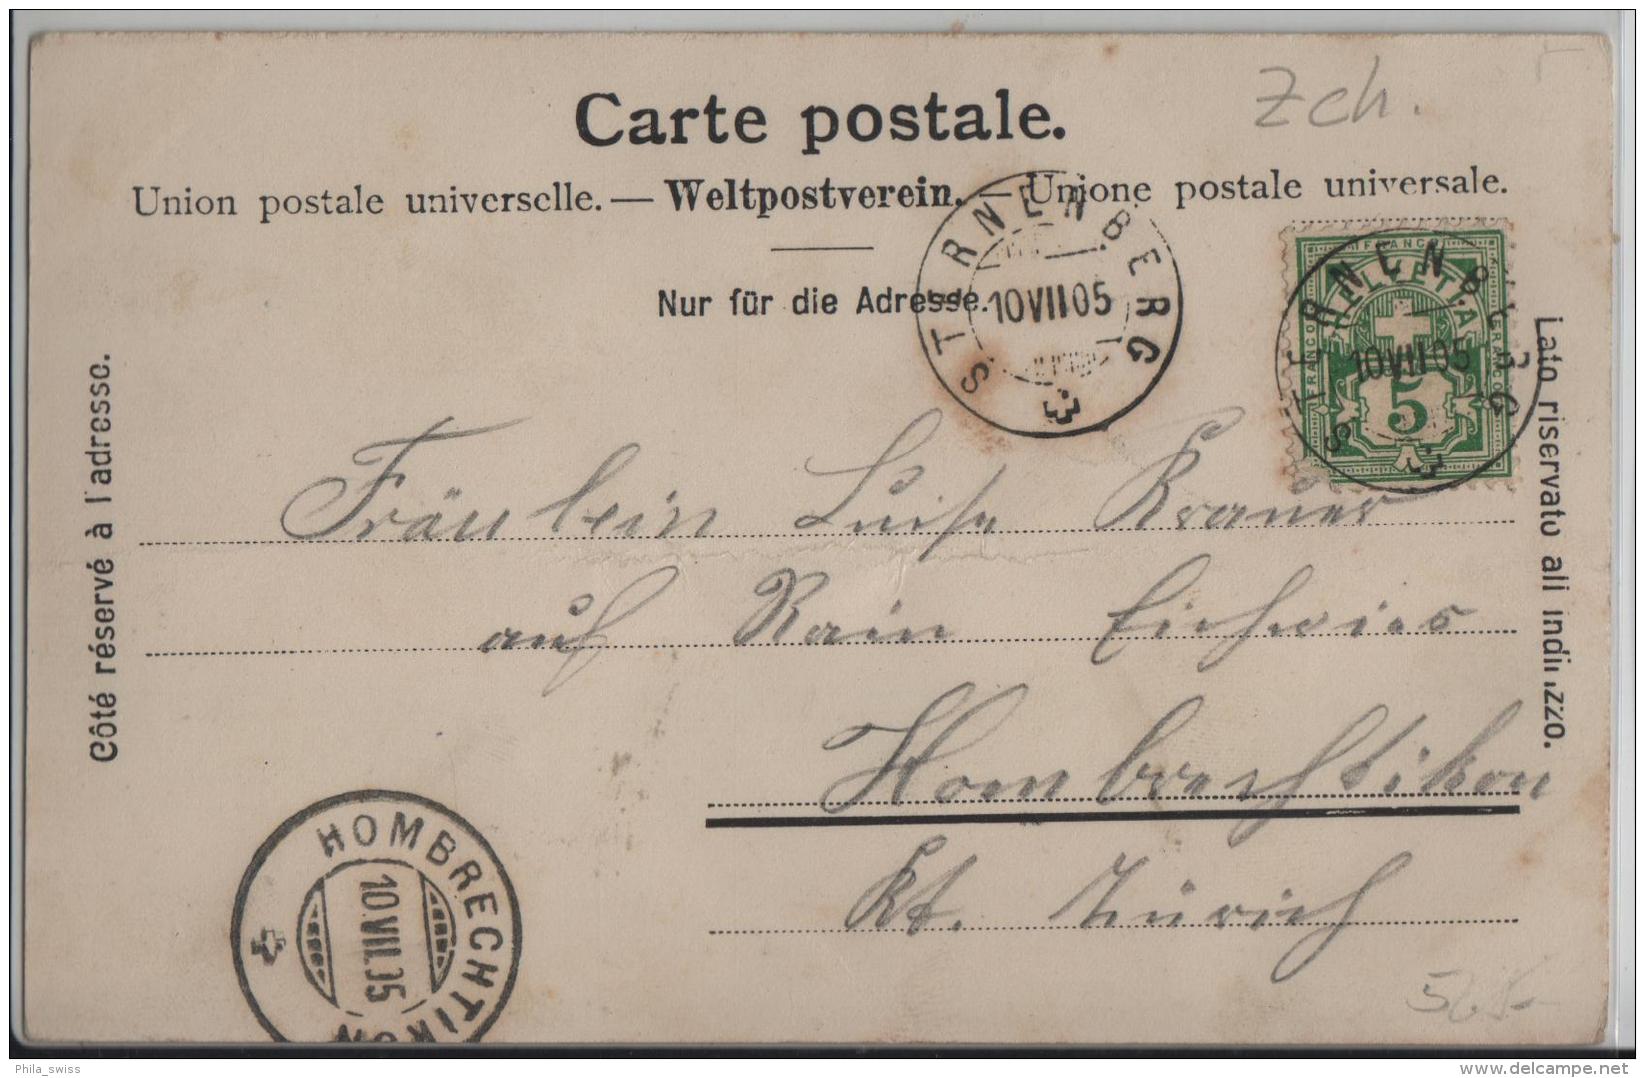 Carte postale.
Zch.
Union postale universelle. — Weltpostverein. — Unione postale universale.
Nur für die Adresse.
STERNENBERG
10VII05
FRANCO
HELVETIA
FRANCO
FRANCO
5
STERNENBERG
10VII05
Côté réservé à l'adresse.
Lato riservato all indirizzo.
Fräulein Luise Kraner
auf Rain Eichwies
Hombrechtikon
Kt. Zürich
HOMBRECHTIKON
10.VII.05
Phila_swiss
delcampe.net